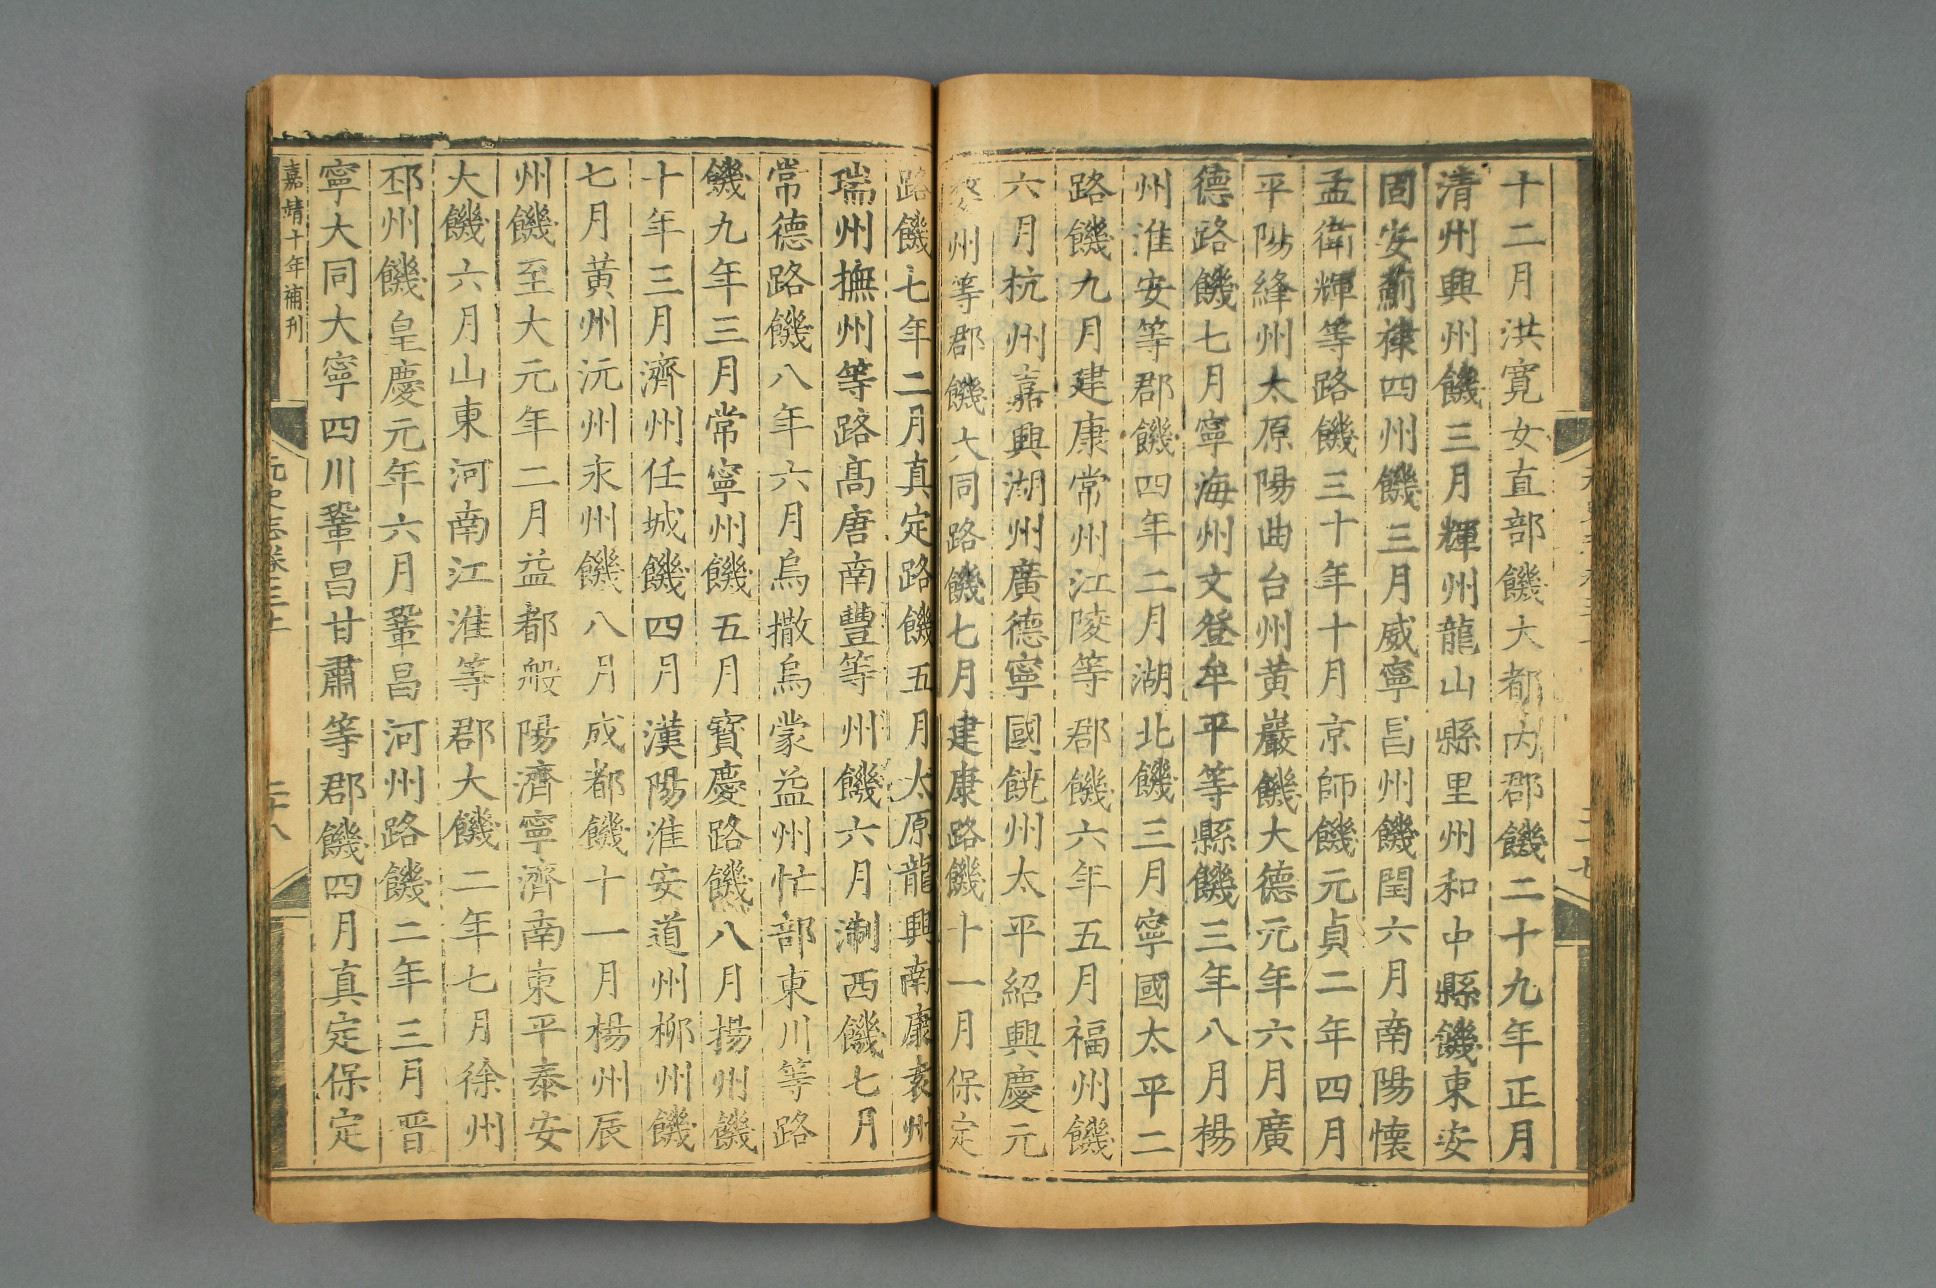 十二月洪寛女直部饑大都内郡饑二十九年正月
清州興州饑三月輝州龍山縣里州和中縣饑東安
固安薊棣四州饑三月威寧昌州饑閏六月南陽懷
孟衛輝等路饑三十年十月京師饑元貞二年四月
平陽絳州太原陽曲台州黃巖饑大德元年六月廣
德路饑七月寧海州文登牟平等縣饑三年八月楊
州淮安等郡饑四年二月湖北饑三月寧國太平二
路饑九月建康常州江陵等郡饑六年五月福州饑
六月杭州嘉興湖州廣德寧國饒州太平紹興慶元
婺州等郡饑大同路饑七月建康路饑十一月保定
路饑七年二月真定路饑五月太原龍興南康袁州
瑞州撫州等路高唐南豐等州饑六月浙西饑七月
常德路饑八年六月烏撒烏蒙益州忙部東川等路
饑九年三月常寧州饑五月寶慶路饑八月揚州饑
十年三月濟州任城饑四月漢陽淮安道州柳州饑
七月黃州沅州永州饑八月成都饑十一月楊州辰
州饑至大元年二月益都般陽濟寧濟南東平泰安
大饑六月山東河南江淮等郡大饑二年七月徐州
邳州饑皇慶元年六月鞏昌河州路饑二年三月晋
寧大同大寧四川鞏昌甘肅等郡饑四月真定保定
嘉靖十年補刊
元史志卷三
二十八